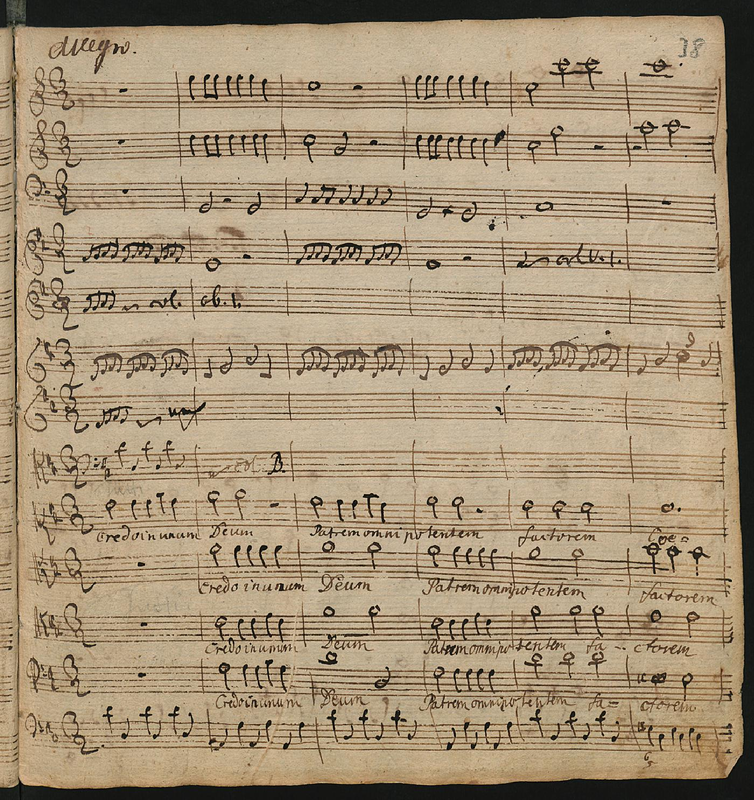 Allegro. 38
B.
Credo in unum Deum Patrem omnipotentem factorem Coe=
Credo in unum Deum Patrem omnipotentem factorem
Credo in unum Deum Patrem omnipotentem fa - ctorem
Credo in unum Deum Patrem omnipotentem fa= ctorem
6
5